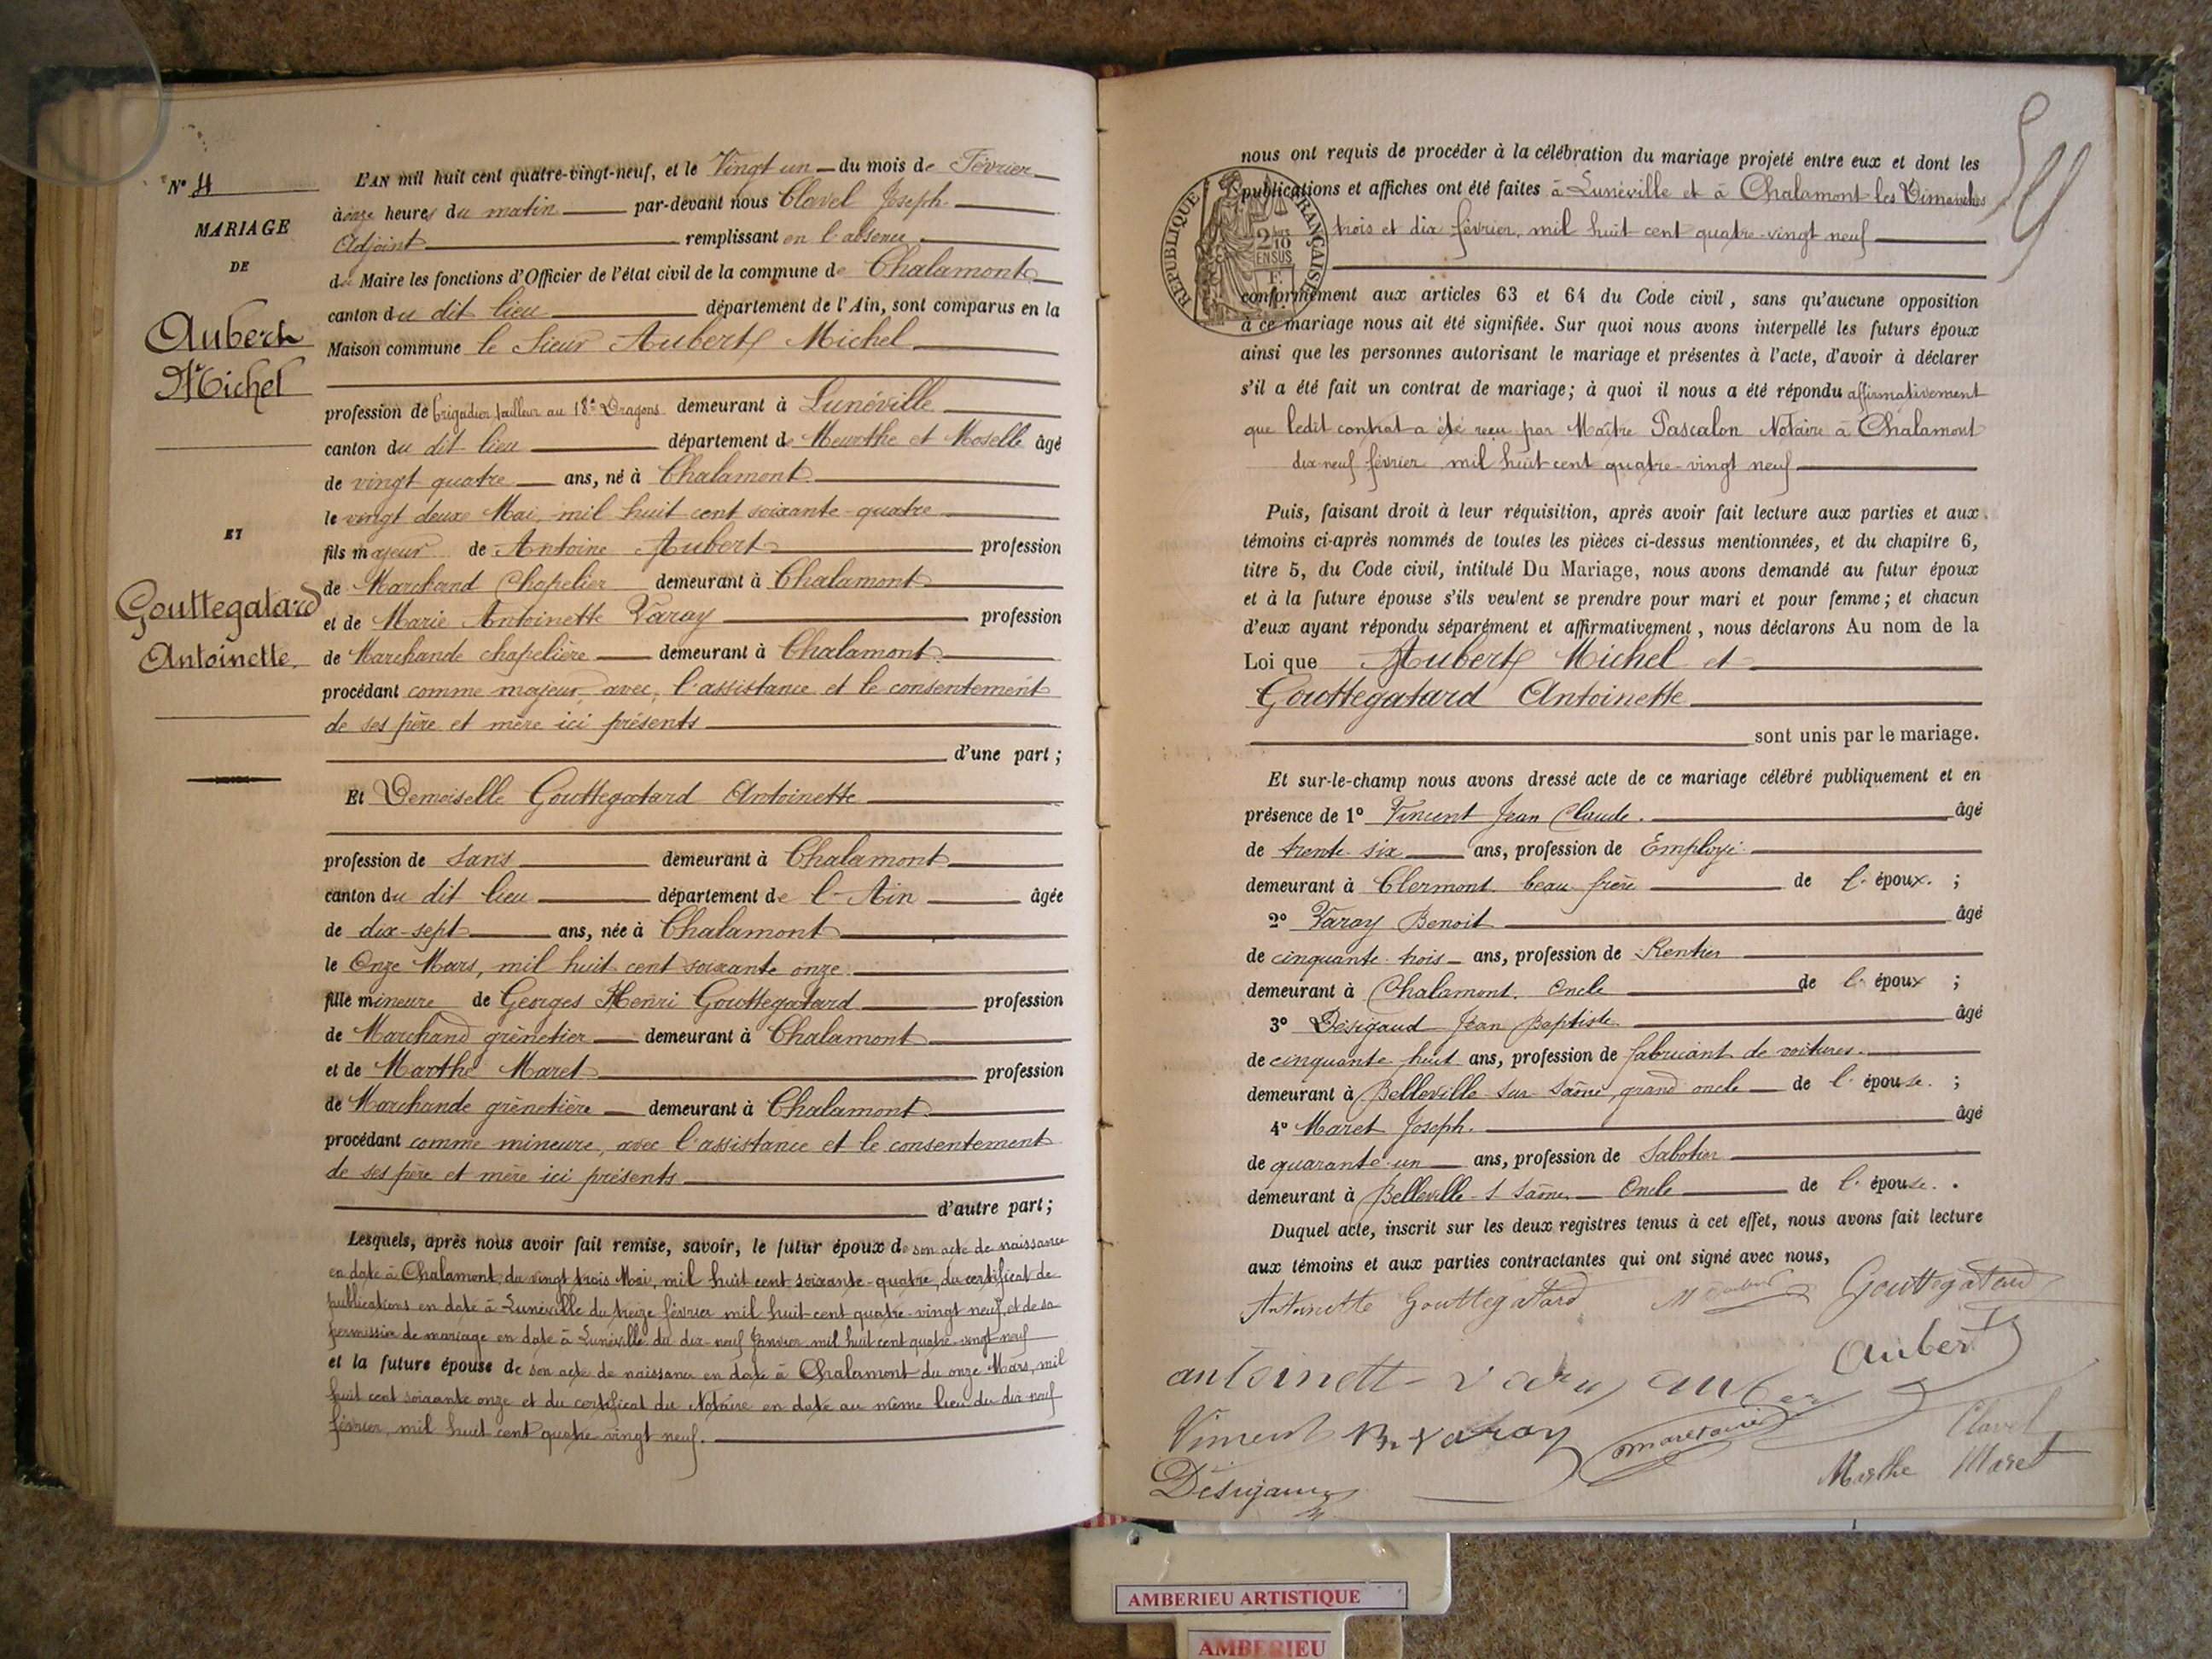 N° 4
MARIAGE
DE
Aubert
Michel
ET
Gouttegatard
Antoinette.
L'AN mil huit cent quatre-vingt-neuf, et le Vingt un du mois de Février
à onze heures du matin par-devant nous Clavel Joseph
Adjoint remplissant en l'absence
du Maire les fonctions d'Officier de l'état civil de la commune de Chalamont
canton du dit lieu département de l'Ain, sont comparus en la
Maison commune le Sieur Aubert Michel
profession de brigadier tailleur au 18e Dragons demeurant à Lunéville
canton du dit lieu département de Meurthe et Moselle âgé
de vingt quatre ans, né à Chalamont
le vingt deux Mai, mil huit cent soixante-quatre
fils majeur de Antoine Aubert profession
de Marchand Chapelier demeurant à Chalamont
et de Marie Antoinette Varay profession
de Marchande chapelière demeurant à Chalamont
procédant comme majeur, avec, l'assistance et le consentement
de ses père et mère ici présents
d'une part ;
Et Demoiselle Gouttegatard Antoinette
profession de Sans demeurant à Chalamont
canton du dit lieu département de l'Ain âgée
de dix-sept ans, née à Chalamont
le Onze Mars, mil huit cent soixante onze
fille mineure de Georges Henri Gouttegatard profession
de Marchand grènetier demeurant à Chalamont
et de Marthe Maret profession
de Marchande grènetière demeurant à Chalamont
procédant comme mineure, avec l'assistance et le consentement
de ses père et mère ici présents
d'autre part ;
Lesquels, après nous avoir fait remise, savoir, le futur époux de son acte de naissance
en date à Chalamont, du vingt trois Mai, mil huit cent soixante-quatre, du certificat de
publications en date à Lunéville du treize février mil huit-cent quatre-vingt neuf, et de sa
permission de mariage en date à Lunéville du dix-neuf Janvier mil huit cent quatre-vingt neuf
et la future épouse de son acte de naissance en date à Chalamont du onze Mars, mil
huit cent soixante onze et du certificat du Notaire en date au même lieu du dix neuf
février, mil huit cent quatre vingt neuf.
54
nous ont requis de procéder à la célébration du mariage projeté entre eux et dont les
publications et affiches ont été faites à Lunéville et à Chalamont les Dimanches
trois et dix février, mil huit cent quatre-vingt neuf
RÉPUBLIQUE FRANÇAISE
2/10
EN SUS
conformément aux articles 63 et 64 du Code civil, sans qu'aucune opposition
à ce mariage nous ait été signifiée. Sur quoi nous avons interpellé les futurs époux
ainsi que les personnes autorisant le mariage et présentes à l'acte, d'avoir à déclarer
s'il a été fait un contrat de mariage; à quoi il nous a été répondu affirmativement
que ledit contrat a été reçu par Maître Pascalon Notaire à Chalamont
dix neuf février mil huit cent quatre-vingt neuf
Puis, faisant droit à leur réquisition, après avoir fait lecture aux parties et aux
témoins ci-après nommés de toutes les pièces ci-dessus mentionnées, et du chapitre 6,
titre 5, du Code civil, intitulé Du Mariage, nous avons demandé au futur époux
et à la future épouse s'ils veulent se prendre pour mari et pour femme; et chacun
d'eux ayant répondu séparément et affirmativement, nous déclarons Au nom de la
Loi que Aubert Michel et
Gouttegatard Antoinette
sont unis par le mariage.
Et sur-le-champ nous avons dressé acte de ce mariage célébré publiquement et en
présence de 1° Vincent Jean Claude. âgé
de trente-six ans, profession de Employé
demeurant à Clermont beau frère de l'époux ;
2° Varay Benoit âgé
de cinquante-trois ans, profession de Rentier
demeurant à Chalamont. Oncle de l'époux ;
3° Désigaud Jean Baptiste âgé
de cinquante huit ans, profession de fabricant de voitures.
demeurant à Belleville sur Saône, grand oncle de l'épouse. ;
4° Maret Joseph. âgé
de quarante-un ans, profession de Sabotier
demeurant à Belleville-s Saône Oncle de l'épouse.
Duquel acte, inscrit sur les deux registres tenus à cet effet, nous avons fait lecture
aux témoins et aux parties contractantes qui ont signé avec nous,
Antoinette Gouttegatard M Aubert Gouttegatard
Aubert
antoinett varay auber
Vincent Bt Varay
Clavel
Marthe Maret
Désigaud
AMBERIEU ARTISTIQUE
AMBERIEU